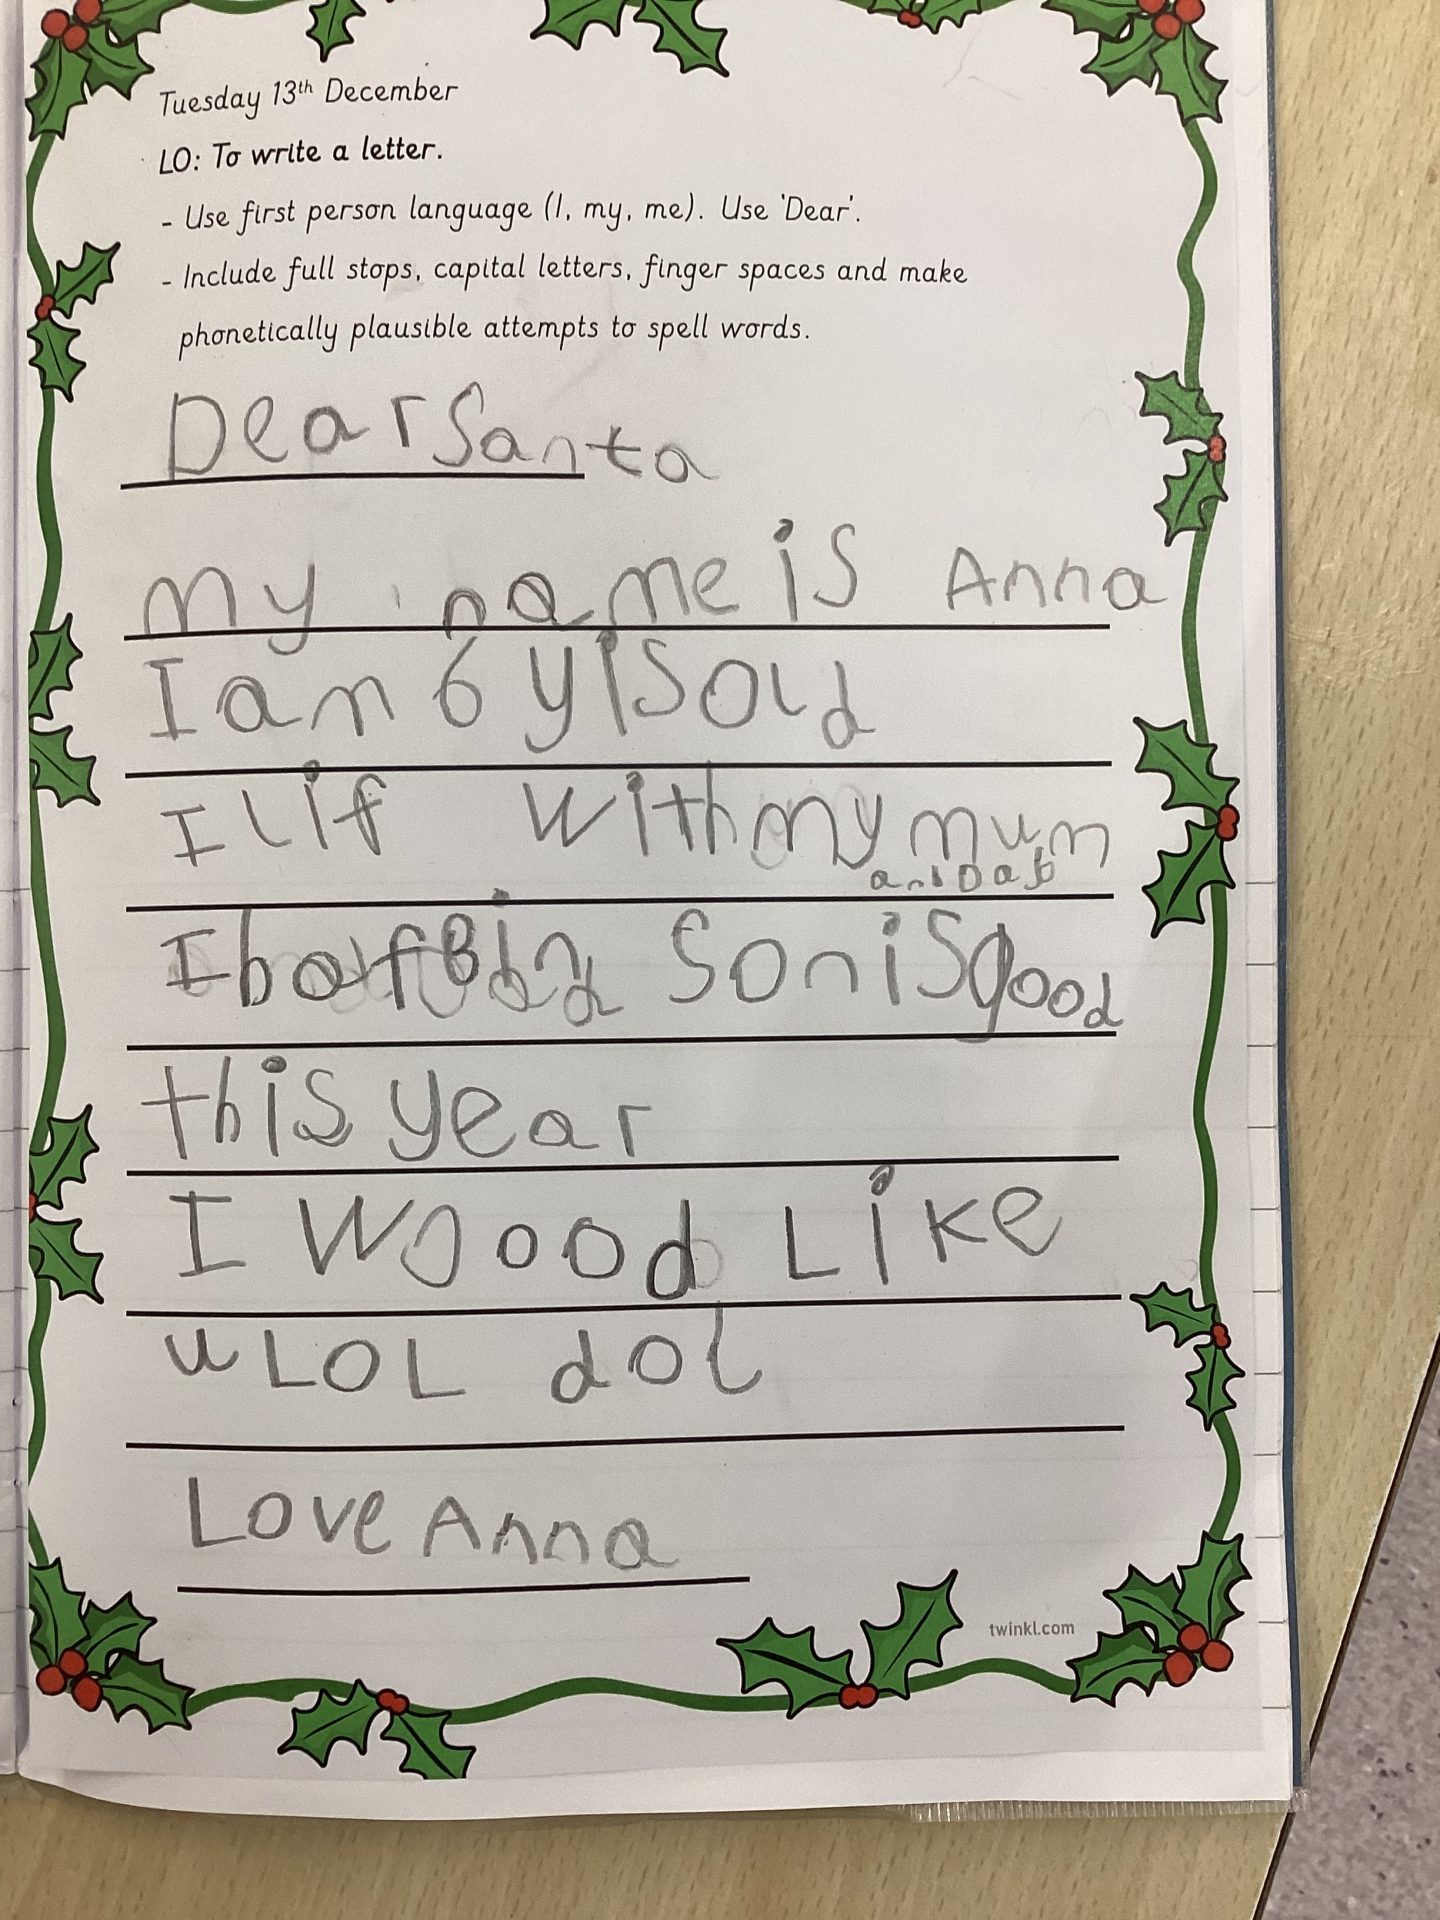 Tuesday 13th December
LO: To write a letter.
- Use first person language (I, my, me). Use 'Dear'.
- Include full stops, capital letters, finger spaces and make
phonetically plausible attempts to spell words.
Dear Santa
my name is Anna
I am 6 yis old
I lif with my mum
and Dab
I
son is good
this year
I Woood Like
u LOL dol
Love Anna
twinkl.com